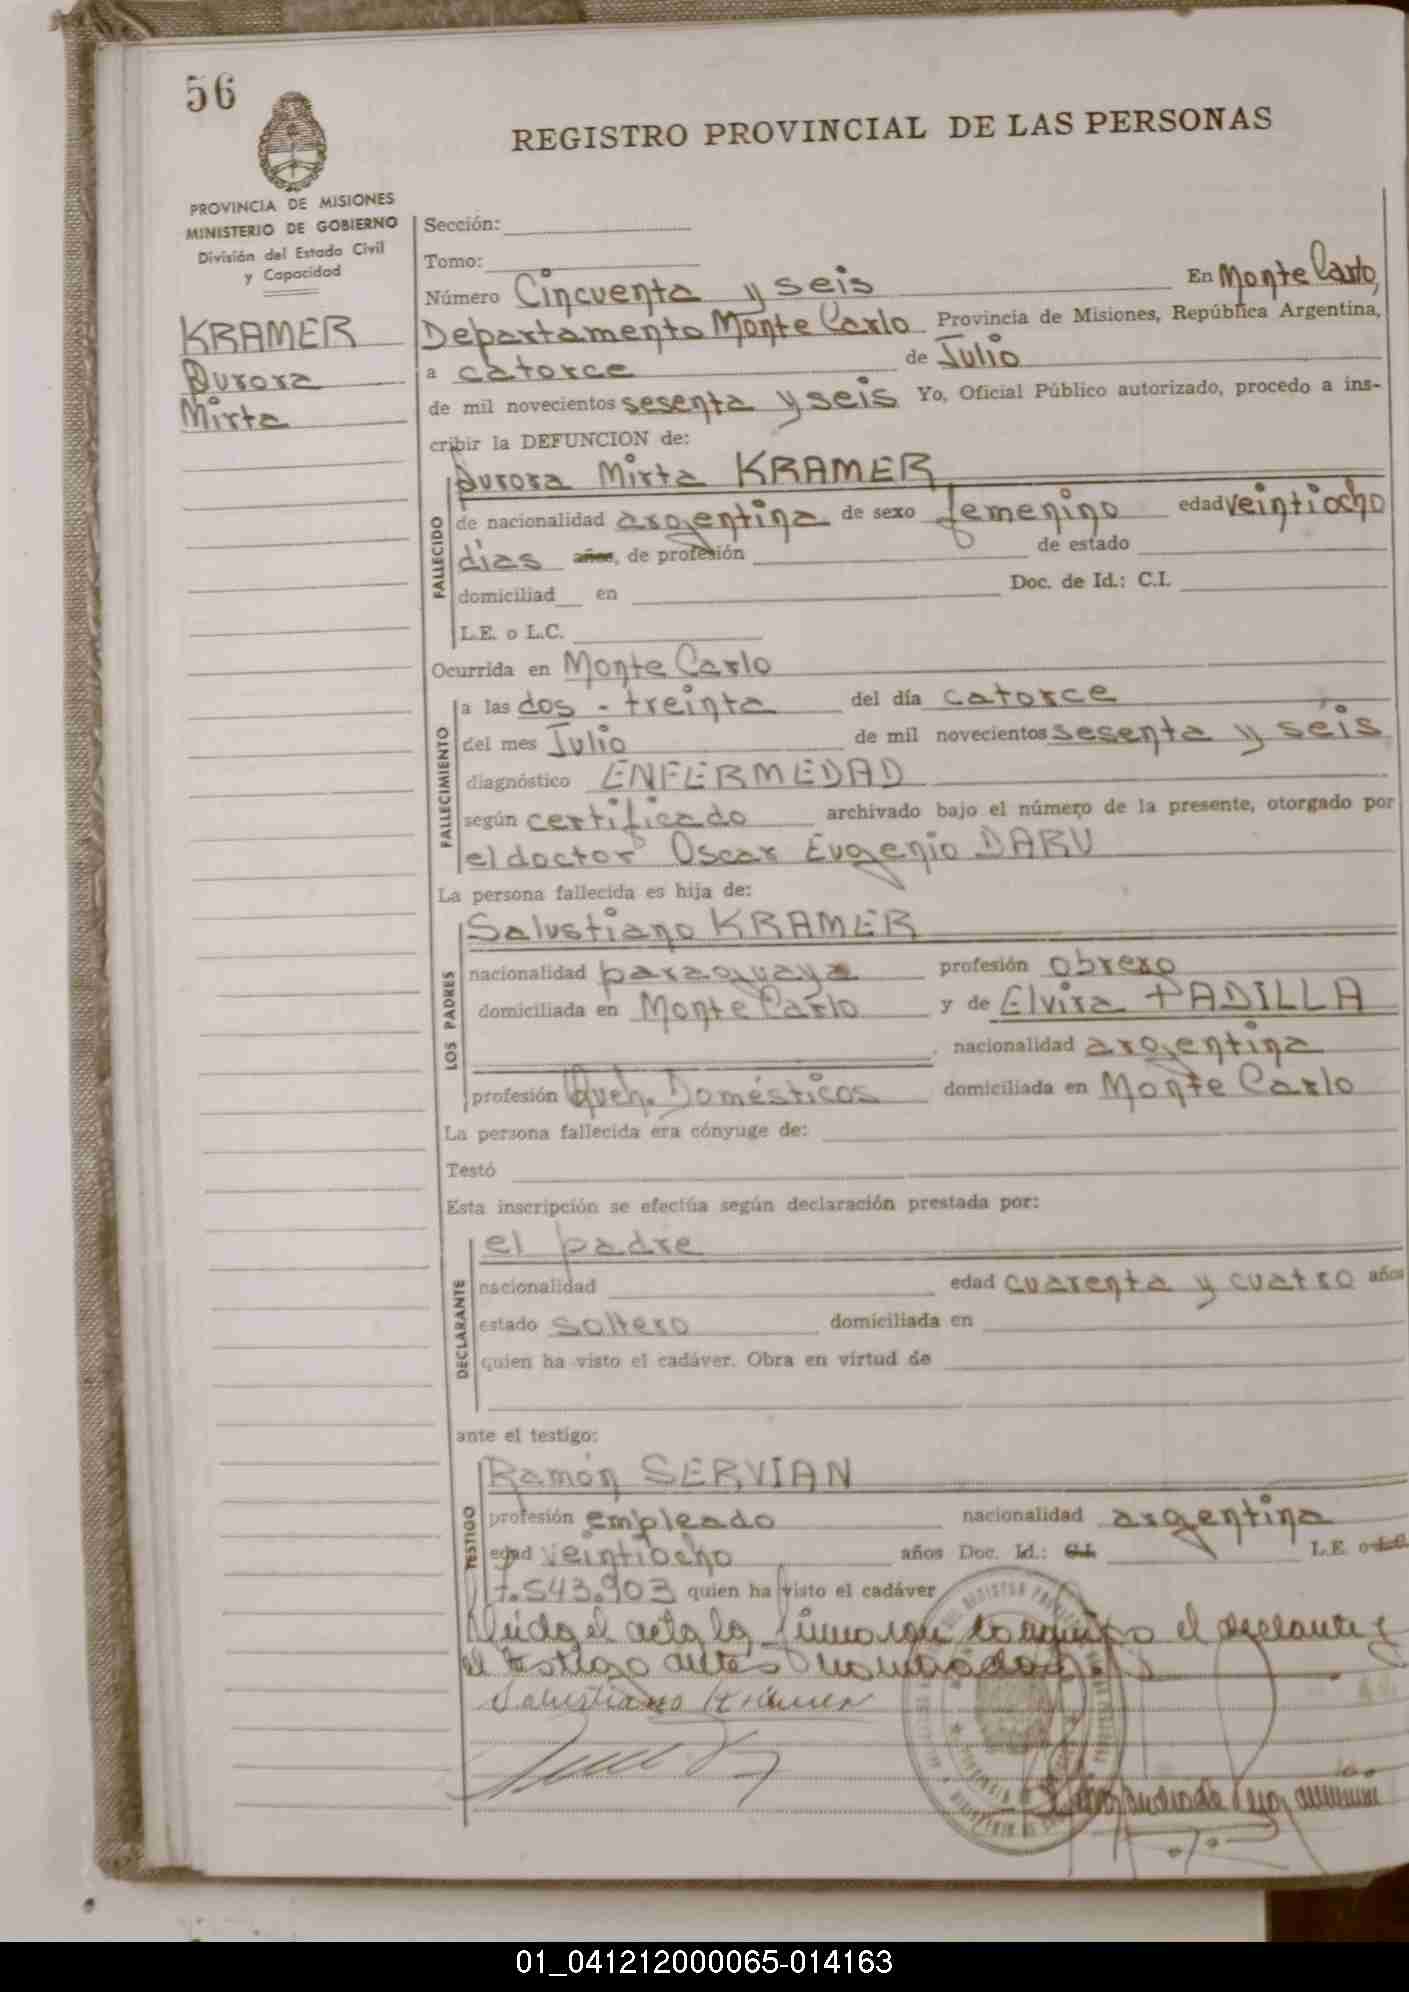 56
REGISTRO PROVINCIAL DE LAS PERSONAS
PROVINCIA DE MISIONES
MINISTERIO DE GOBIERNO
División del Estado Civil
y Capacidad
KRAMER
Aurora
Mirta
Sección:
Tomo:
Número Cincuenta y seis En Monte Carlo,
Departamento Monte Carlo Provincia de Misiones, República Argentina,
a catorce de Julio
de mil novecientos sesenta y seis Yo, Oficial Público autorizado, procedo a ins-
cribir la DEFUNCION de:
Aurora Mirta KRAMER
FALLECIDO
de nacionalidad argentina de sexo femenino edad veintiocho
días años, de profesión de estado
domiciliad en Doc. de Id.: C.I.
L.E. o L.C.
Ocurrida en Monte Carlo
FALLECIMIENTO
a las dos - treinta del día catorce
del mes Julio de mil novecientos sesenta y séis
diagnóstico ENFERMEDAD
según certificado archivado bajo el número de la presente, otorgado por
el doctor Oscar Eugenio DARU
La persona fallecida es hija de:
LOS PADRES
Salustiano KRAMER
nacionalidad paraguaya profesión obrero
domiciliada en Monte Carlo y de Elvira PADILLA
nacionalidad argentina
profesión Queh. Domésticos domiciliada en Monte Carlo
La persona fallecida era cónyuge de:
Testó
Esta inscripción se efectúa según declaración prestada por:
DECLARANTE
el padre
nacionalidad edad cuarenta y cuatro años
estado soltero domiciliada en
quien ha visto el cadáver. Obra en virtud de
ante el testigo:
TESTIGO
Ramón SERVIAN
profesión empleado nacionalidad argentina
edad veintiocho años Doc. Id.: C.I. L.E. o L.C.
7.543.903 quien ha visto el cadáver
Leida el acta la firman conmigo el declarante y
el testigo antes nombrados
Salustiano Kramer
01_041212000065-014163